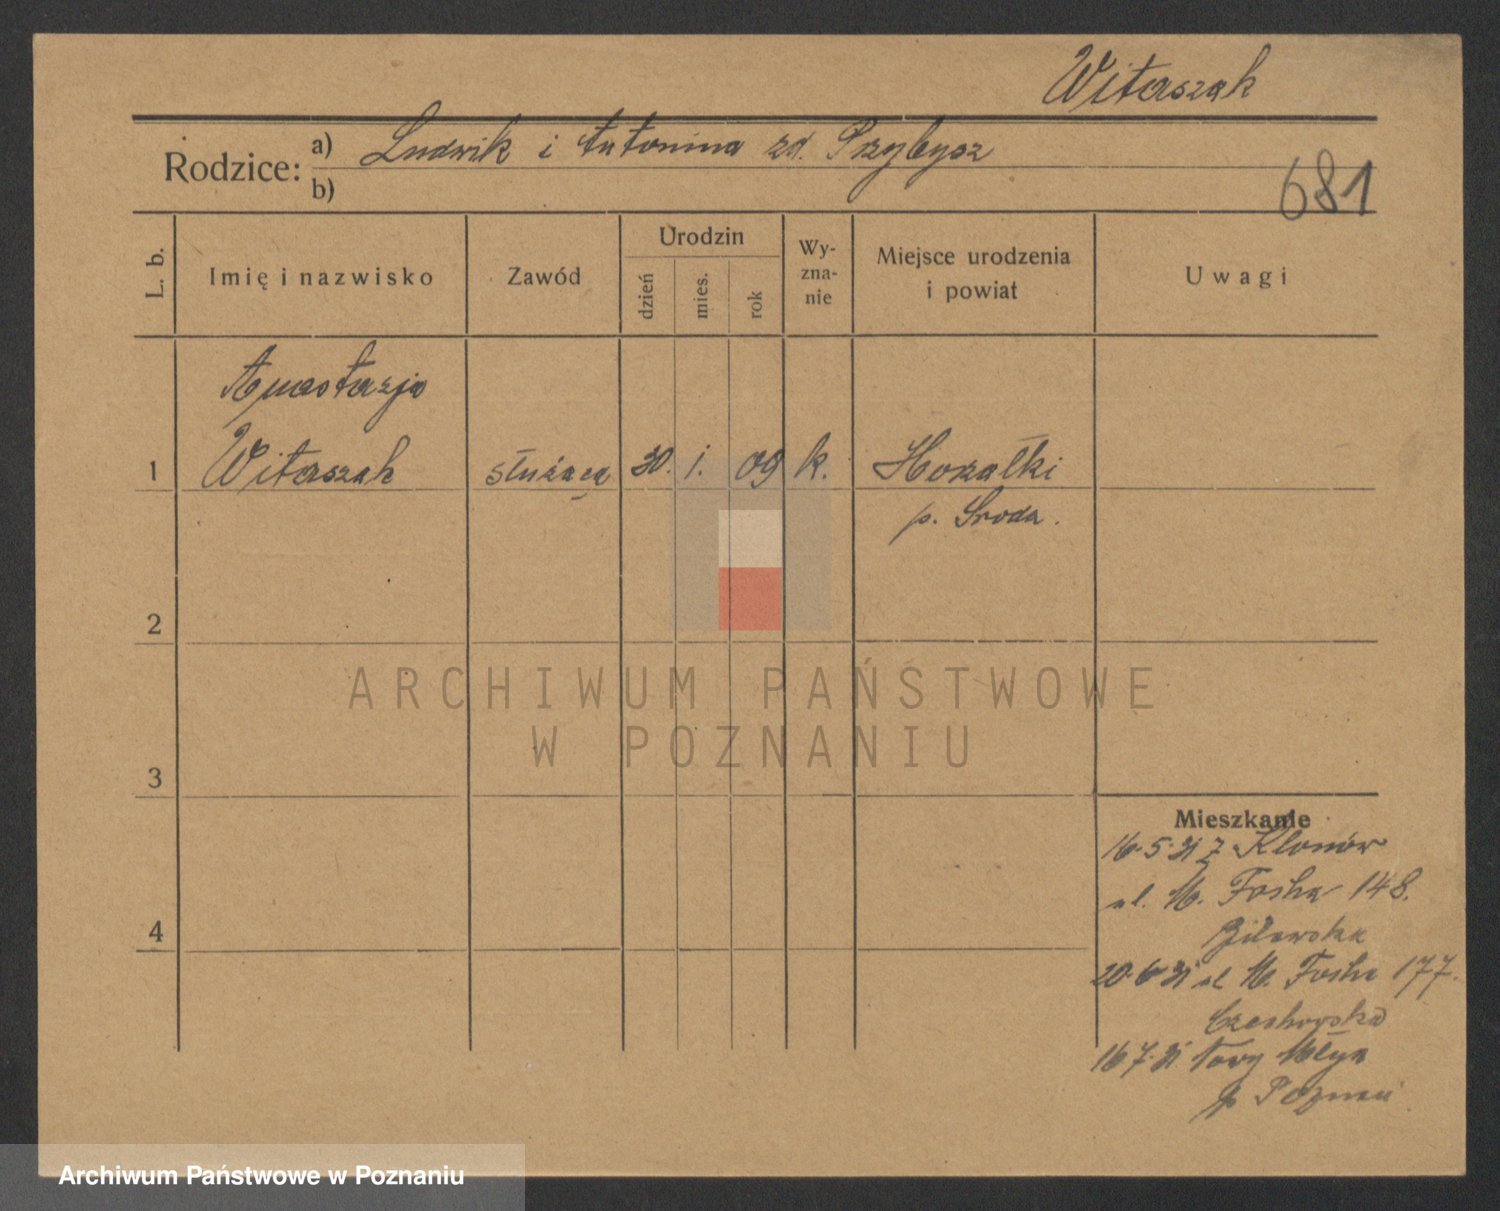 Witaszak
Rodzice: a) Ludwik i Antonina zd. Przybysz
b)
681
L. b.
Imię i nazwisko
Zawód
Urodzin
dzień
mies.
rok
Wy-
zna-
nie
Miejsce urodzenia
i powiat
Uwagi
Anastazja
1 Witaszak służąca 30. 1. 09 k.
p. Środa.
2
3
4
ARCHIWUM PAŃSTWOWE
W POZNANIU
Mieszkanie
16.5.31 z Klonów
ul. M. Focha 148.
20.6.31 ul M. Focha 177.
16.7.31 Młyn
p Poznań
Archiwum Państwowe w Poznaniu